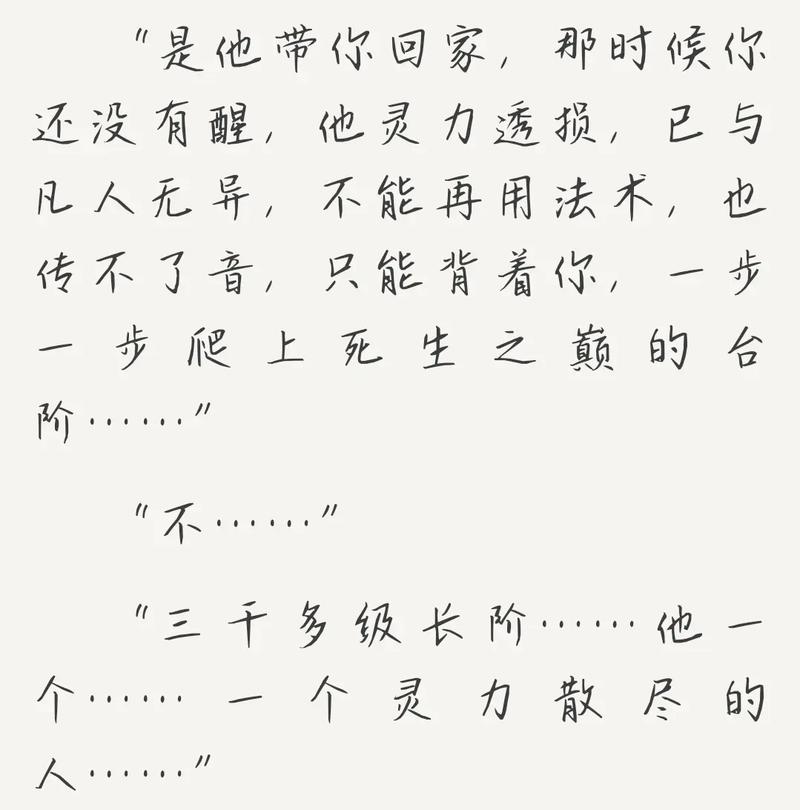 “是他带你回家，那时候你
还没有醒，他灵力透损，已与
凡人无异，不能再用法术，也
传不了音，只能背着你，一步
一步爬上死生之巅的台
阶……”
“不……”
“三千多级长阶……他一
个……一个灵力散尽的
人……”